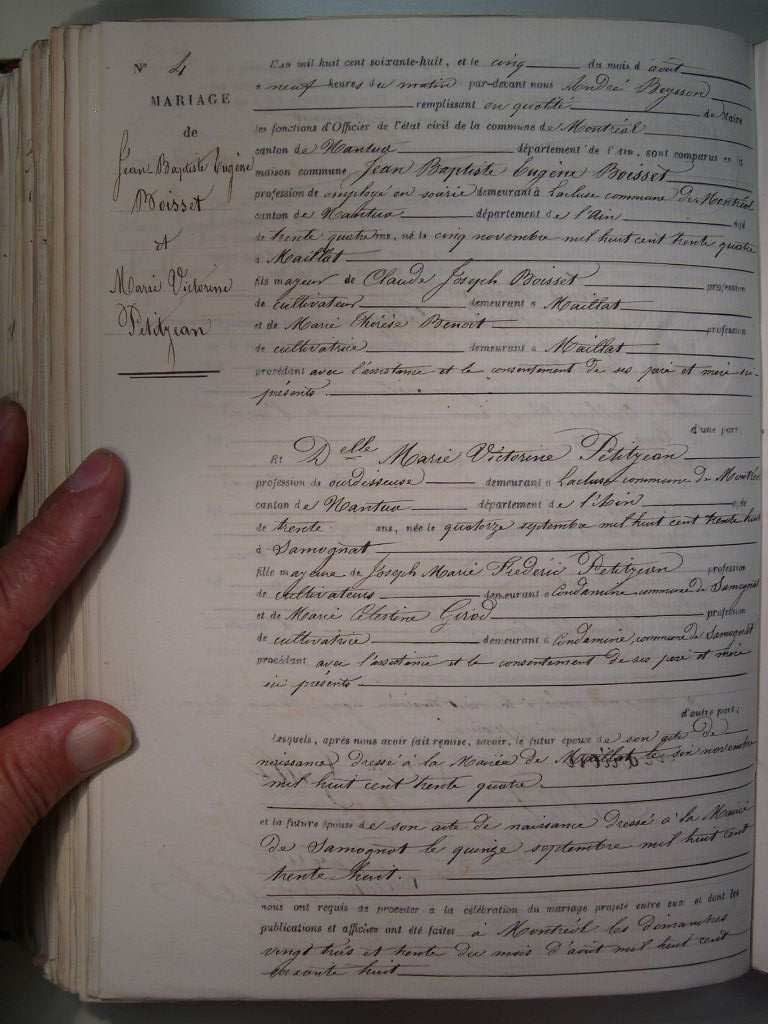 N° 4
MARIAGE
de
Jean Baptiste Eugène
Boisset
et
Marie Victorine
Petitjean
L'an mil huit cent soixante-huit, et le cinq du mois d'août
à neuf heures de matin par-devant nous André Beysson
remplissant en qualité de Maire
les fonctions d'Officier de l'état civil de la commune de Montréal
canton de Nantua département de l'Ain, sont comparus en la
maison commune Jean Baptiste Eugène Boisset
profession de employé en soirie demeurant à Lacluse commune de Montréal
canton de Nantua département de l'Ain âgé
de trente quatre ans, né le cinq novembre mil huit cent trente quatre
à Maillat
fils mayeur de Claude Joseph Boisset profession
de cultivateur demeurant à Maillat
et de Marie Thérèse Benoit profession
de cultivatrice demeurant à Maillat
procédant avec l'assistance et le consentement de ses père et mère ici
présents.
d'une part.
Et Delle Marie Victorine Petitjean
profession de ourdisseuse demeurant à Lacluse commune de Montréal
canton de Nantua département de l'Ain âgée
de trente ans, née le quatorze septembre mil huit cent trente huit
à Samognat
fille mayeure de Joseph Marie Frédéric Petitjean profession
de cultivateurs demeurant à Condamine commune de Samognat
et de Marie Célestine Girod profession
de cultivatrice demeurant à Condamine, commune de Samognat
procédant avec l'assistance et le consentement de ses père et mère
ici présents
d'autre part;
Lesquels, après nous avoir fait remise, savoir, le futur époux de son acte de
naissance dressé à la Mairie de Maillat le six novembre
mil huit cent trente quatre.
et la future épouse de son acte de naissance dressé à la Mairie
de Samognat le quinze septembre mil huit cent
trente huit.
nous ont requis de procéder à la célébration du mariage projeté entre eux et dont les
publications et affiches ont été faites à Montréal les dimanches
vingt trois et trente du mois d'août mil huit cent
soixante huit